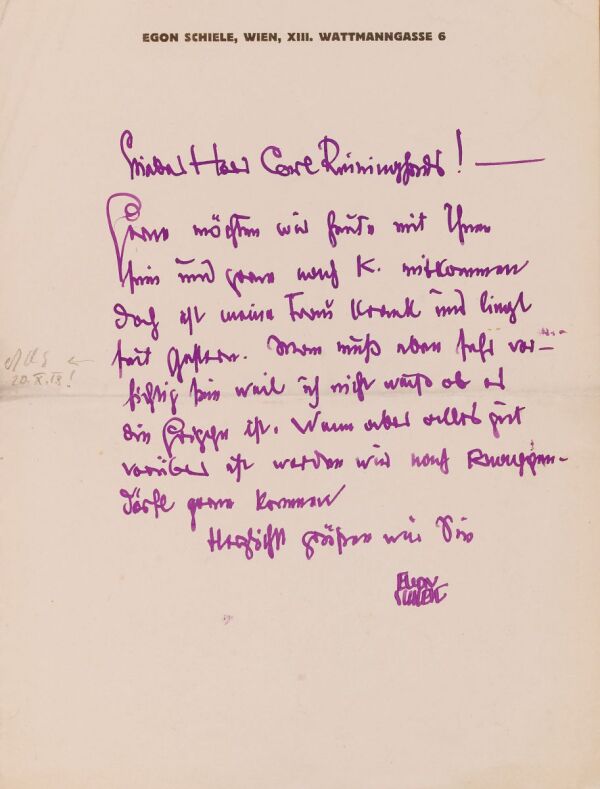 EGON SCHIELE, WIEN, XIII. WATTMANNGASSE 6
Lieber Herr Carl Reininghaus! —
Gerne möchten wir heute mit Ihnen
sein und gerne nach K. mitkommen
doch ist meine Frau krank und liegt
seit gestern. Man muß eben sehr vor-
sichtig sein weil ich nicht weiß ob es
die Grippe ist. Wenn aber alles gut
vorüber ist werden wir nach
gerne kommen
Herzlichst grüßen wir Sie
EGON
SCHIELE
20.X.18!